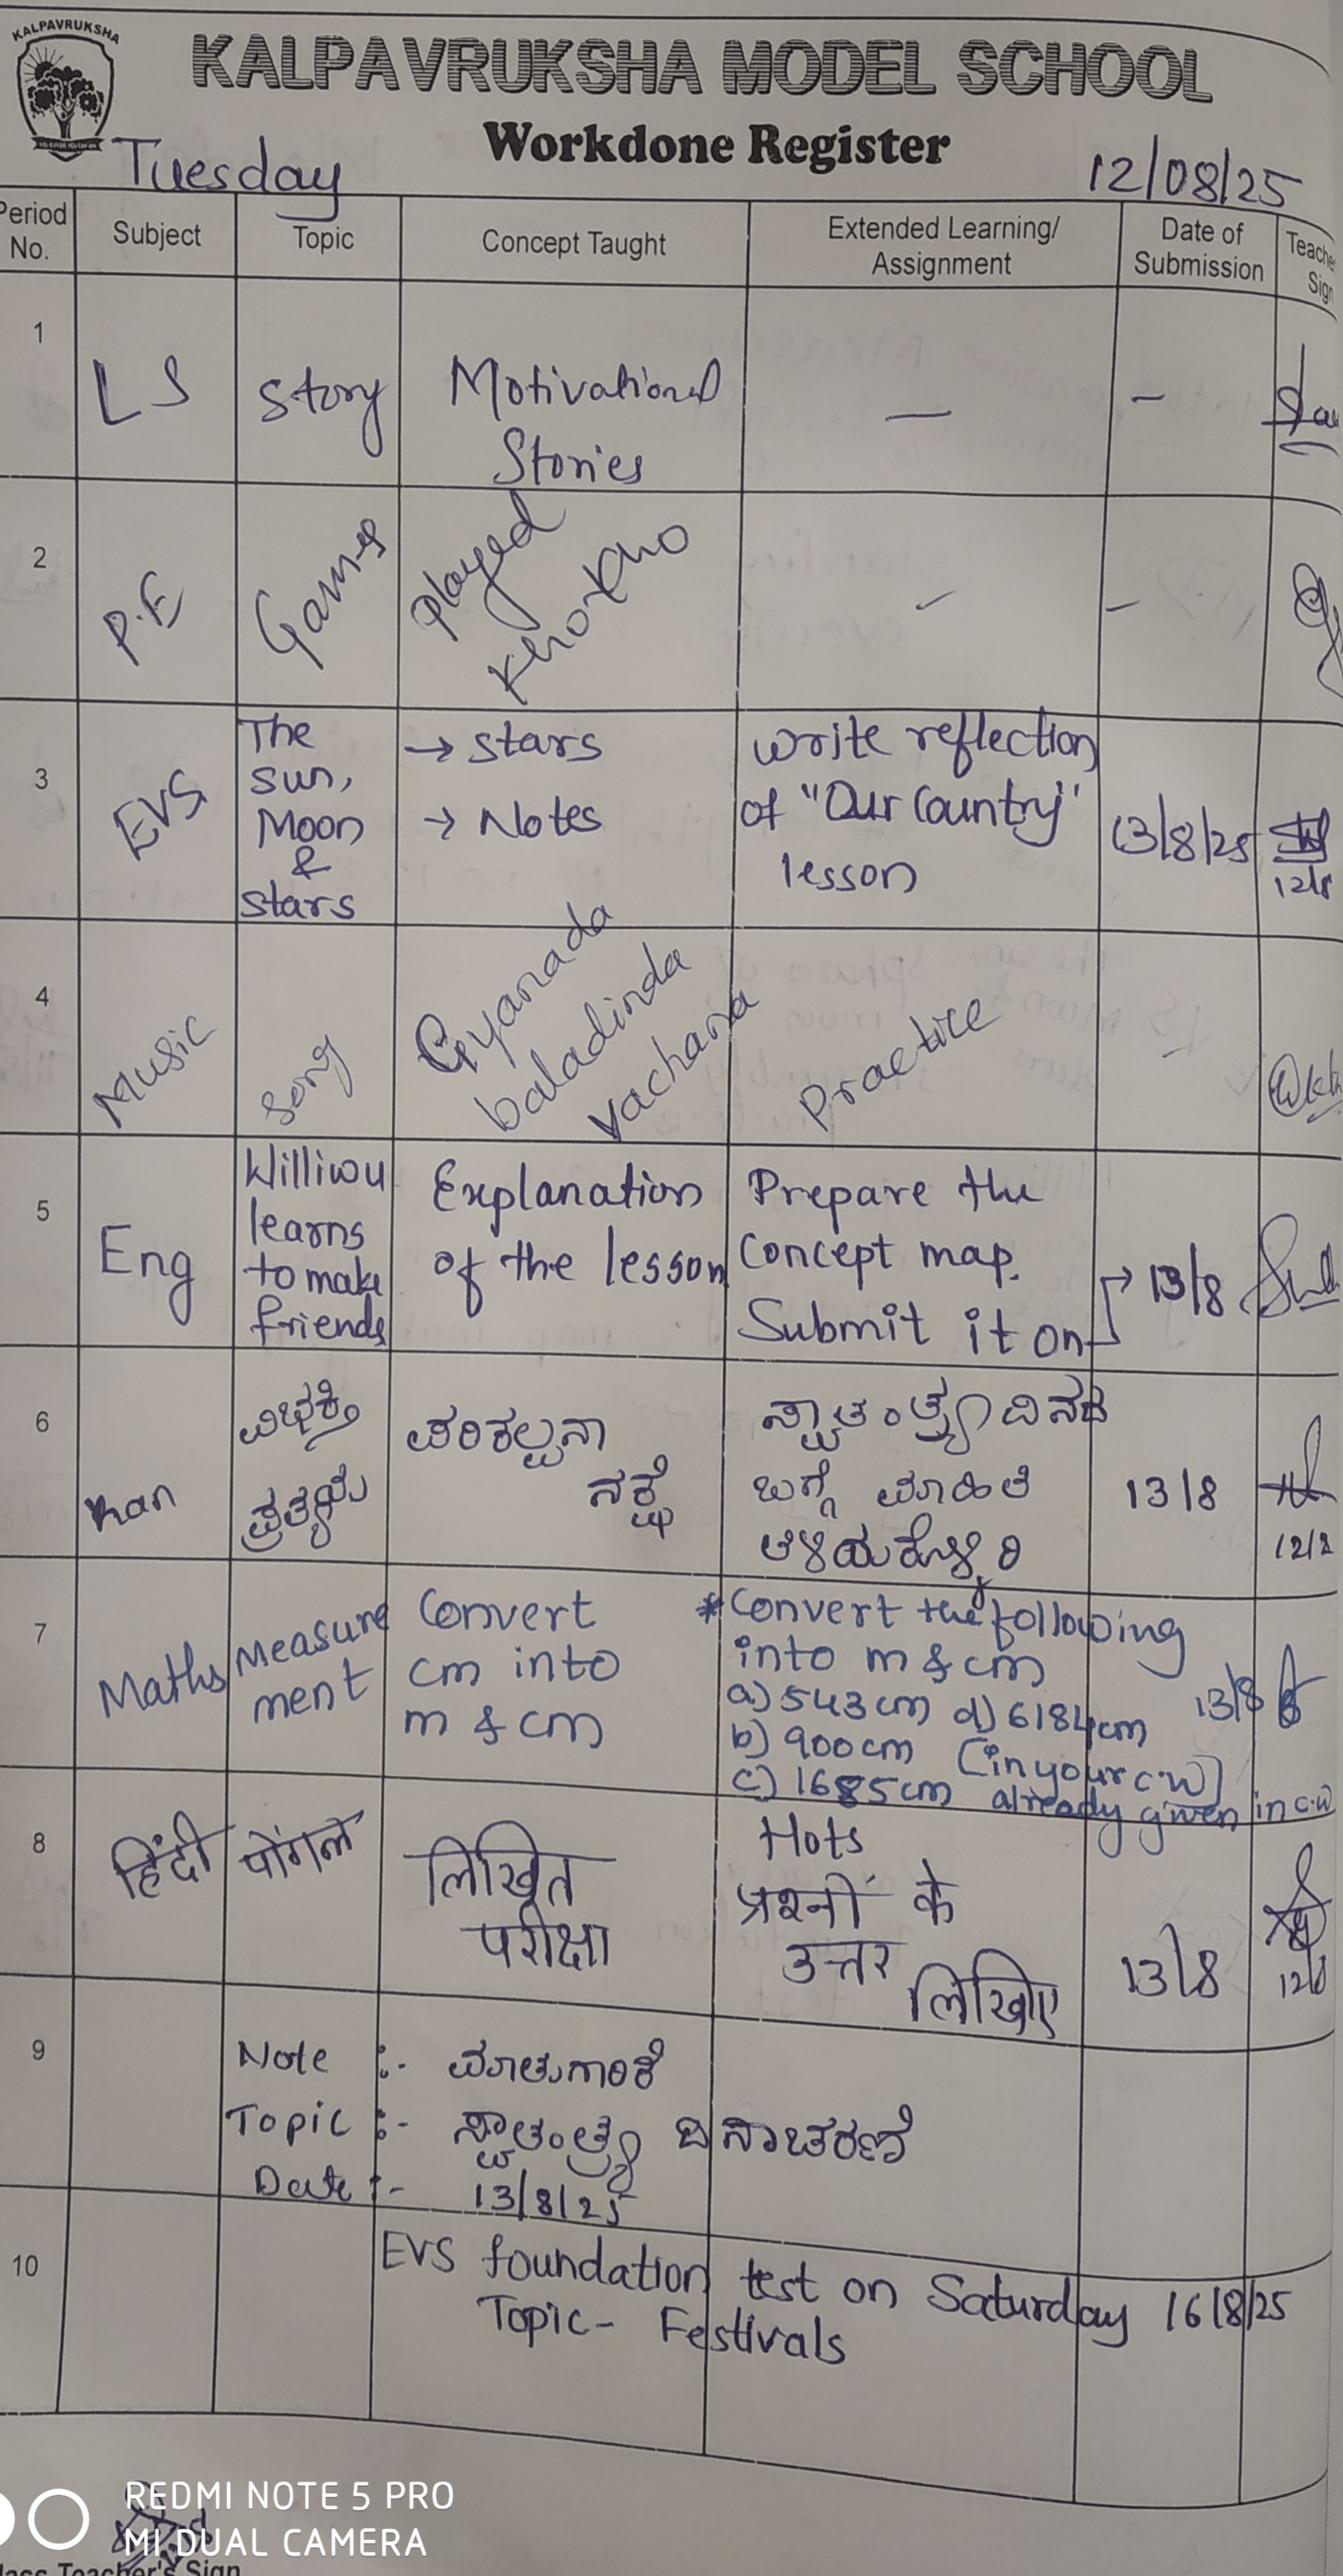 KALPAVRUKSHA
KALPAVRUKSHA MODEL SCHOOL
Workdone Register
Tuesday
12/08/25
Period No.
Subject
Topic
Concept Taught
Extended Learning/
Assignment
Date of
Submission
Teache
Sign
1
LS
Story
Motivational
Stories
—
–
2
P.E
Games
Played
Kho Kho
–
–
3
EVS
The
sun,
Moon
&
stars
→ stars
→ Notes
Write reflection
of "Our Country"
lesson
13/8/25
12/8
4
Music
Song
Gyanada
baladinda
vachana
Practice
–
5
Eng
Williwu
learns
to make
friends
Explanation
of the lesson
Prepare the
Concept map.
Submit it on
13/8
6
Kan
ವಿಭಕ್ತಿ
ಪ್ರತ್ಯಯ
ಪರಿಕಲ್ಪನಾ
ನಕ್ಷೆ
ಸ್ವಾತಂತ್ರ್ಯ ದಿನದ
ಬಗ್ಗೆ ಮಾಹಿತಿ
13/8
7
Maths
Measure
ment
Convert
cm into
m & cm
* Convert the following
into m & cm
a) 543 cm d) 6184 cm
b) 900 cm (in your c.w)
c) 1685 cm already given in c.w
13/8
8
हिंदी
पोंगल
लिखित
परीक्षा
Hots
प्रश्नों के
उत्तर
लिखिए
13/8
12/8
9
Note :- ಮಾತುಗಾರಿಕೆ
Topic :- ಸ್ವಾತಂತ್ರ್ಯ ದಿನಾಚರಣೆ
Date :- 13/8/25
10
EVS foundation test on Saturday 16/8/25
Topic- Festivals
REDMI NOTE 5 PRO
MI DUAL CAMERA
Teacher's Sign